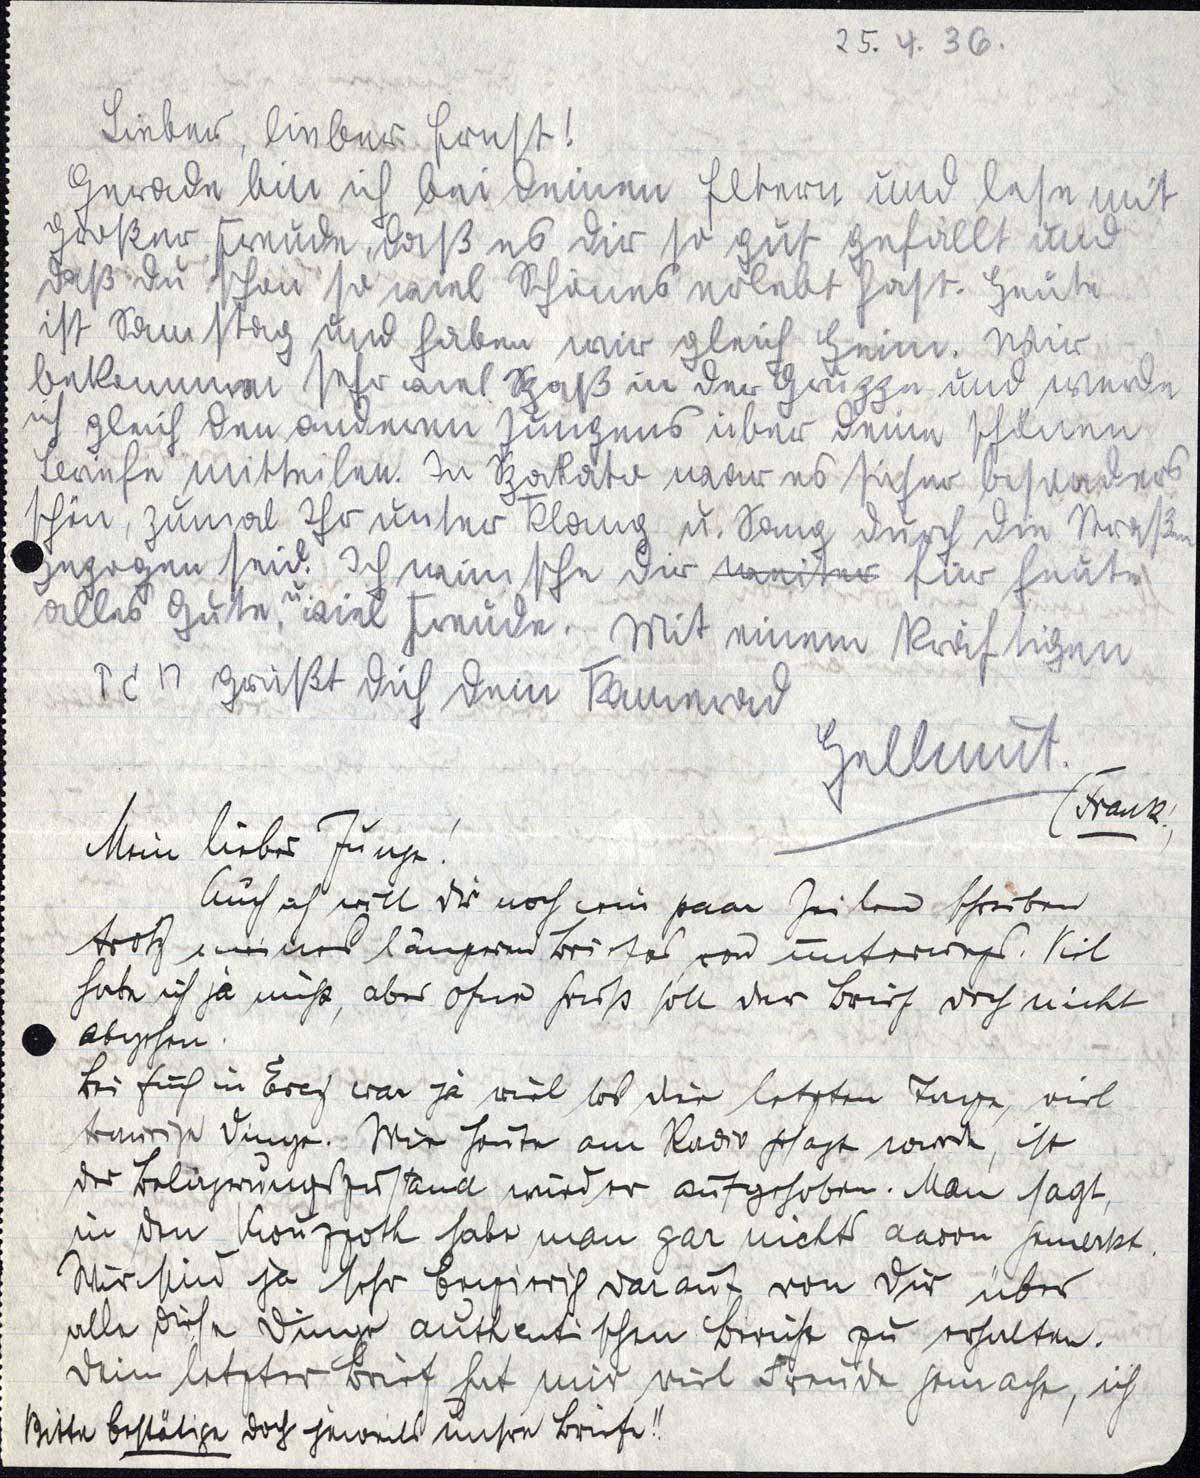 25. 4. 36.
Lieber, lieber Ernst!
Gerade bin ich bei deinen Eltern und lese mit
großer Freude, daß es dir so gut gefällt und
daß du schon so viel Schönes erlebt hast. Heute
ist Samstag und haben wir gleich Heim. Wir
bekommen sehr viel Spaß in der Gruppe und werde
ich gleich den anderen Jungens über deine schönen
Briefe mitteilen. In Spalato war es sicher besonders
schön, zumal Ihr unter Klang u. Sang durch die Straßen
gezogen seid. Ich wünsche dir weiter für heute
alles Gute, u. viel Freude. Mit einem kräftigen
grüßt dich dein Kamerad
Hellmut.
(Frank.)
Mein lieber Junge!
Auch ich will dir noch ein paar Zeilen schreiben
trotz meines längeren Briefes von unterwegs. Viel
habe ich ja nicht, aber ohne Gruß soll der Brief doch nicht
abgehen.
Bei Euch in Erez war ja viel los die letzten Tage, viel
traurige Dinge. Wie heute am Radio gesagt wurde, ist
der Belagerungszustand wieder aufgehoben. Man sagt,
in den Kwuzoth habe man gar nichts davon gemerkt.
Wir sind ja sehr begierig darauf von Dir über
alle diese Dinge authentischen Bericht zu erhalten.
Dein letzter Brief hat mir viel Freude gemacht, ich
Bitte bestätige doch jeweils unsre Briefe!!